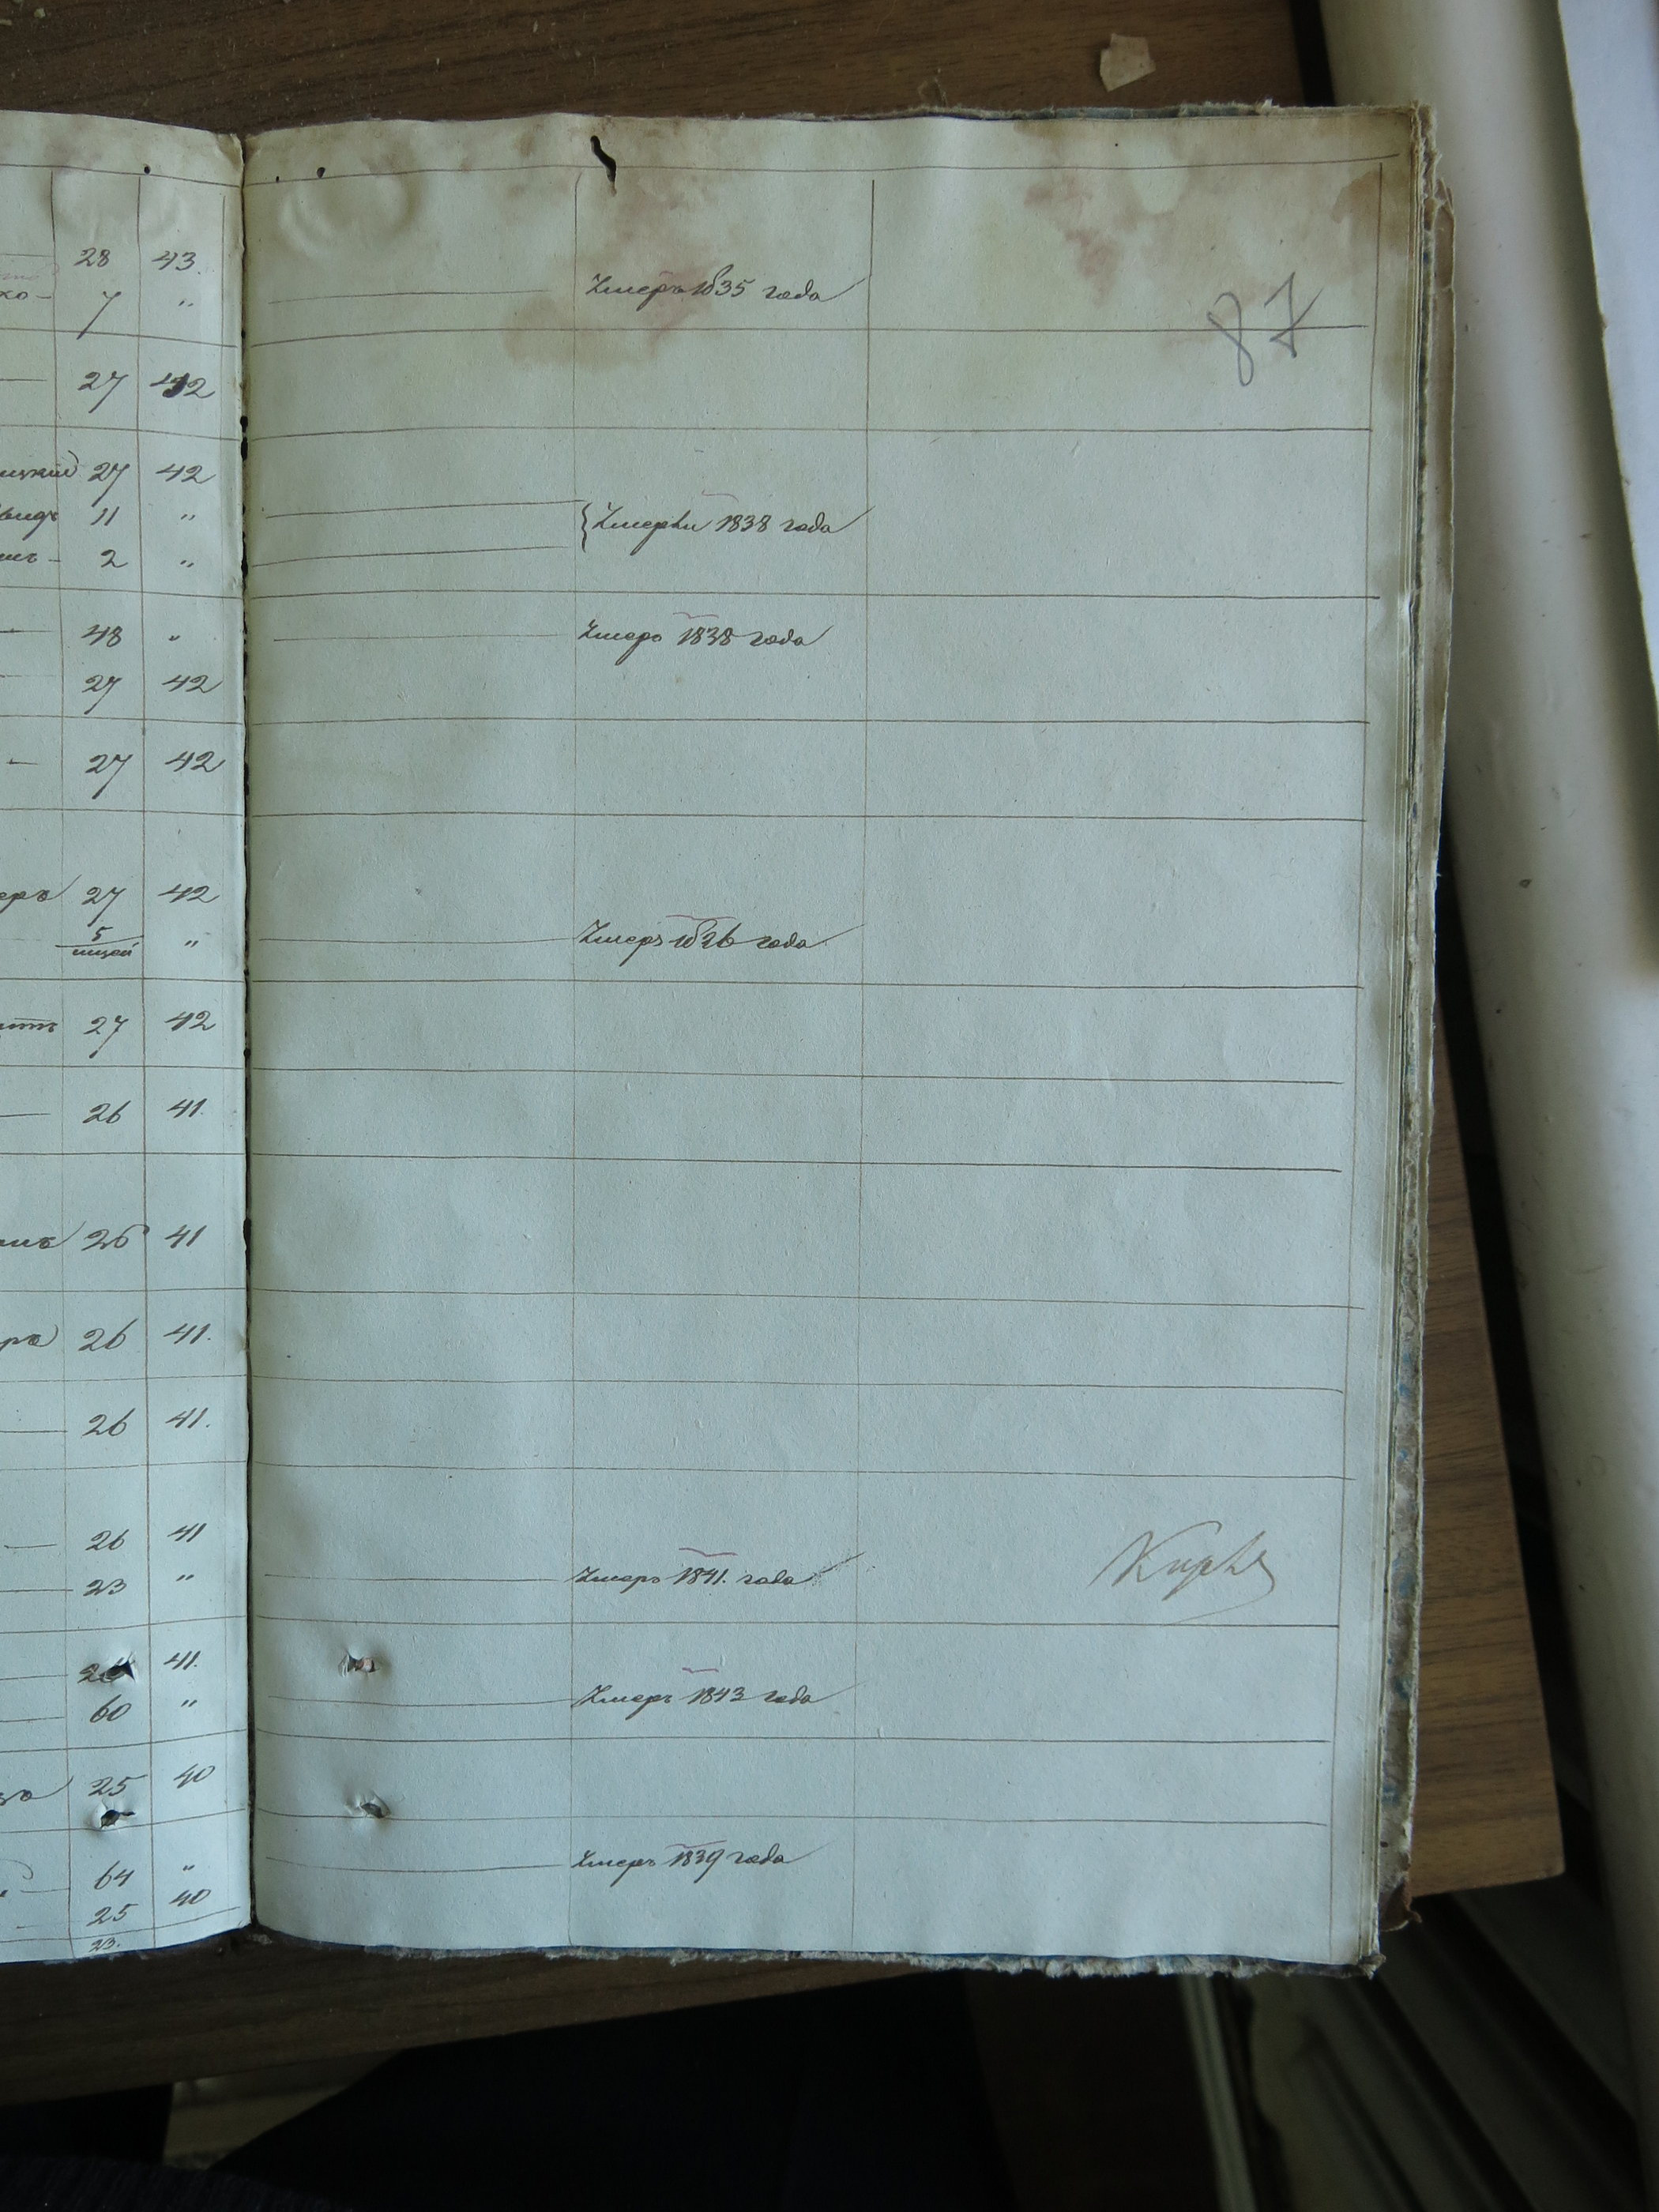 28 43.
ко- 7 "
Умеръ 1835 года
87
27 42
ицкій 27 42
видъ 11 "
Умерли 1838 года
2 "
48 "
Умеръ 1838 года
27 42
27 42
еръ 27 42
5 "
Умеръ 1826 года
27 42
26 41.
26 41
ръ 26 41.
26 41.
26 41
23 "
Умеръ 1841. года
41.
60 "
Умеръ 1843 года
25 40
64 "
Умеръ 1839 года
25 40
23.